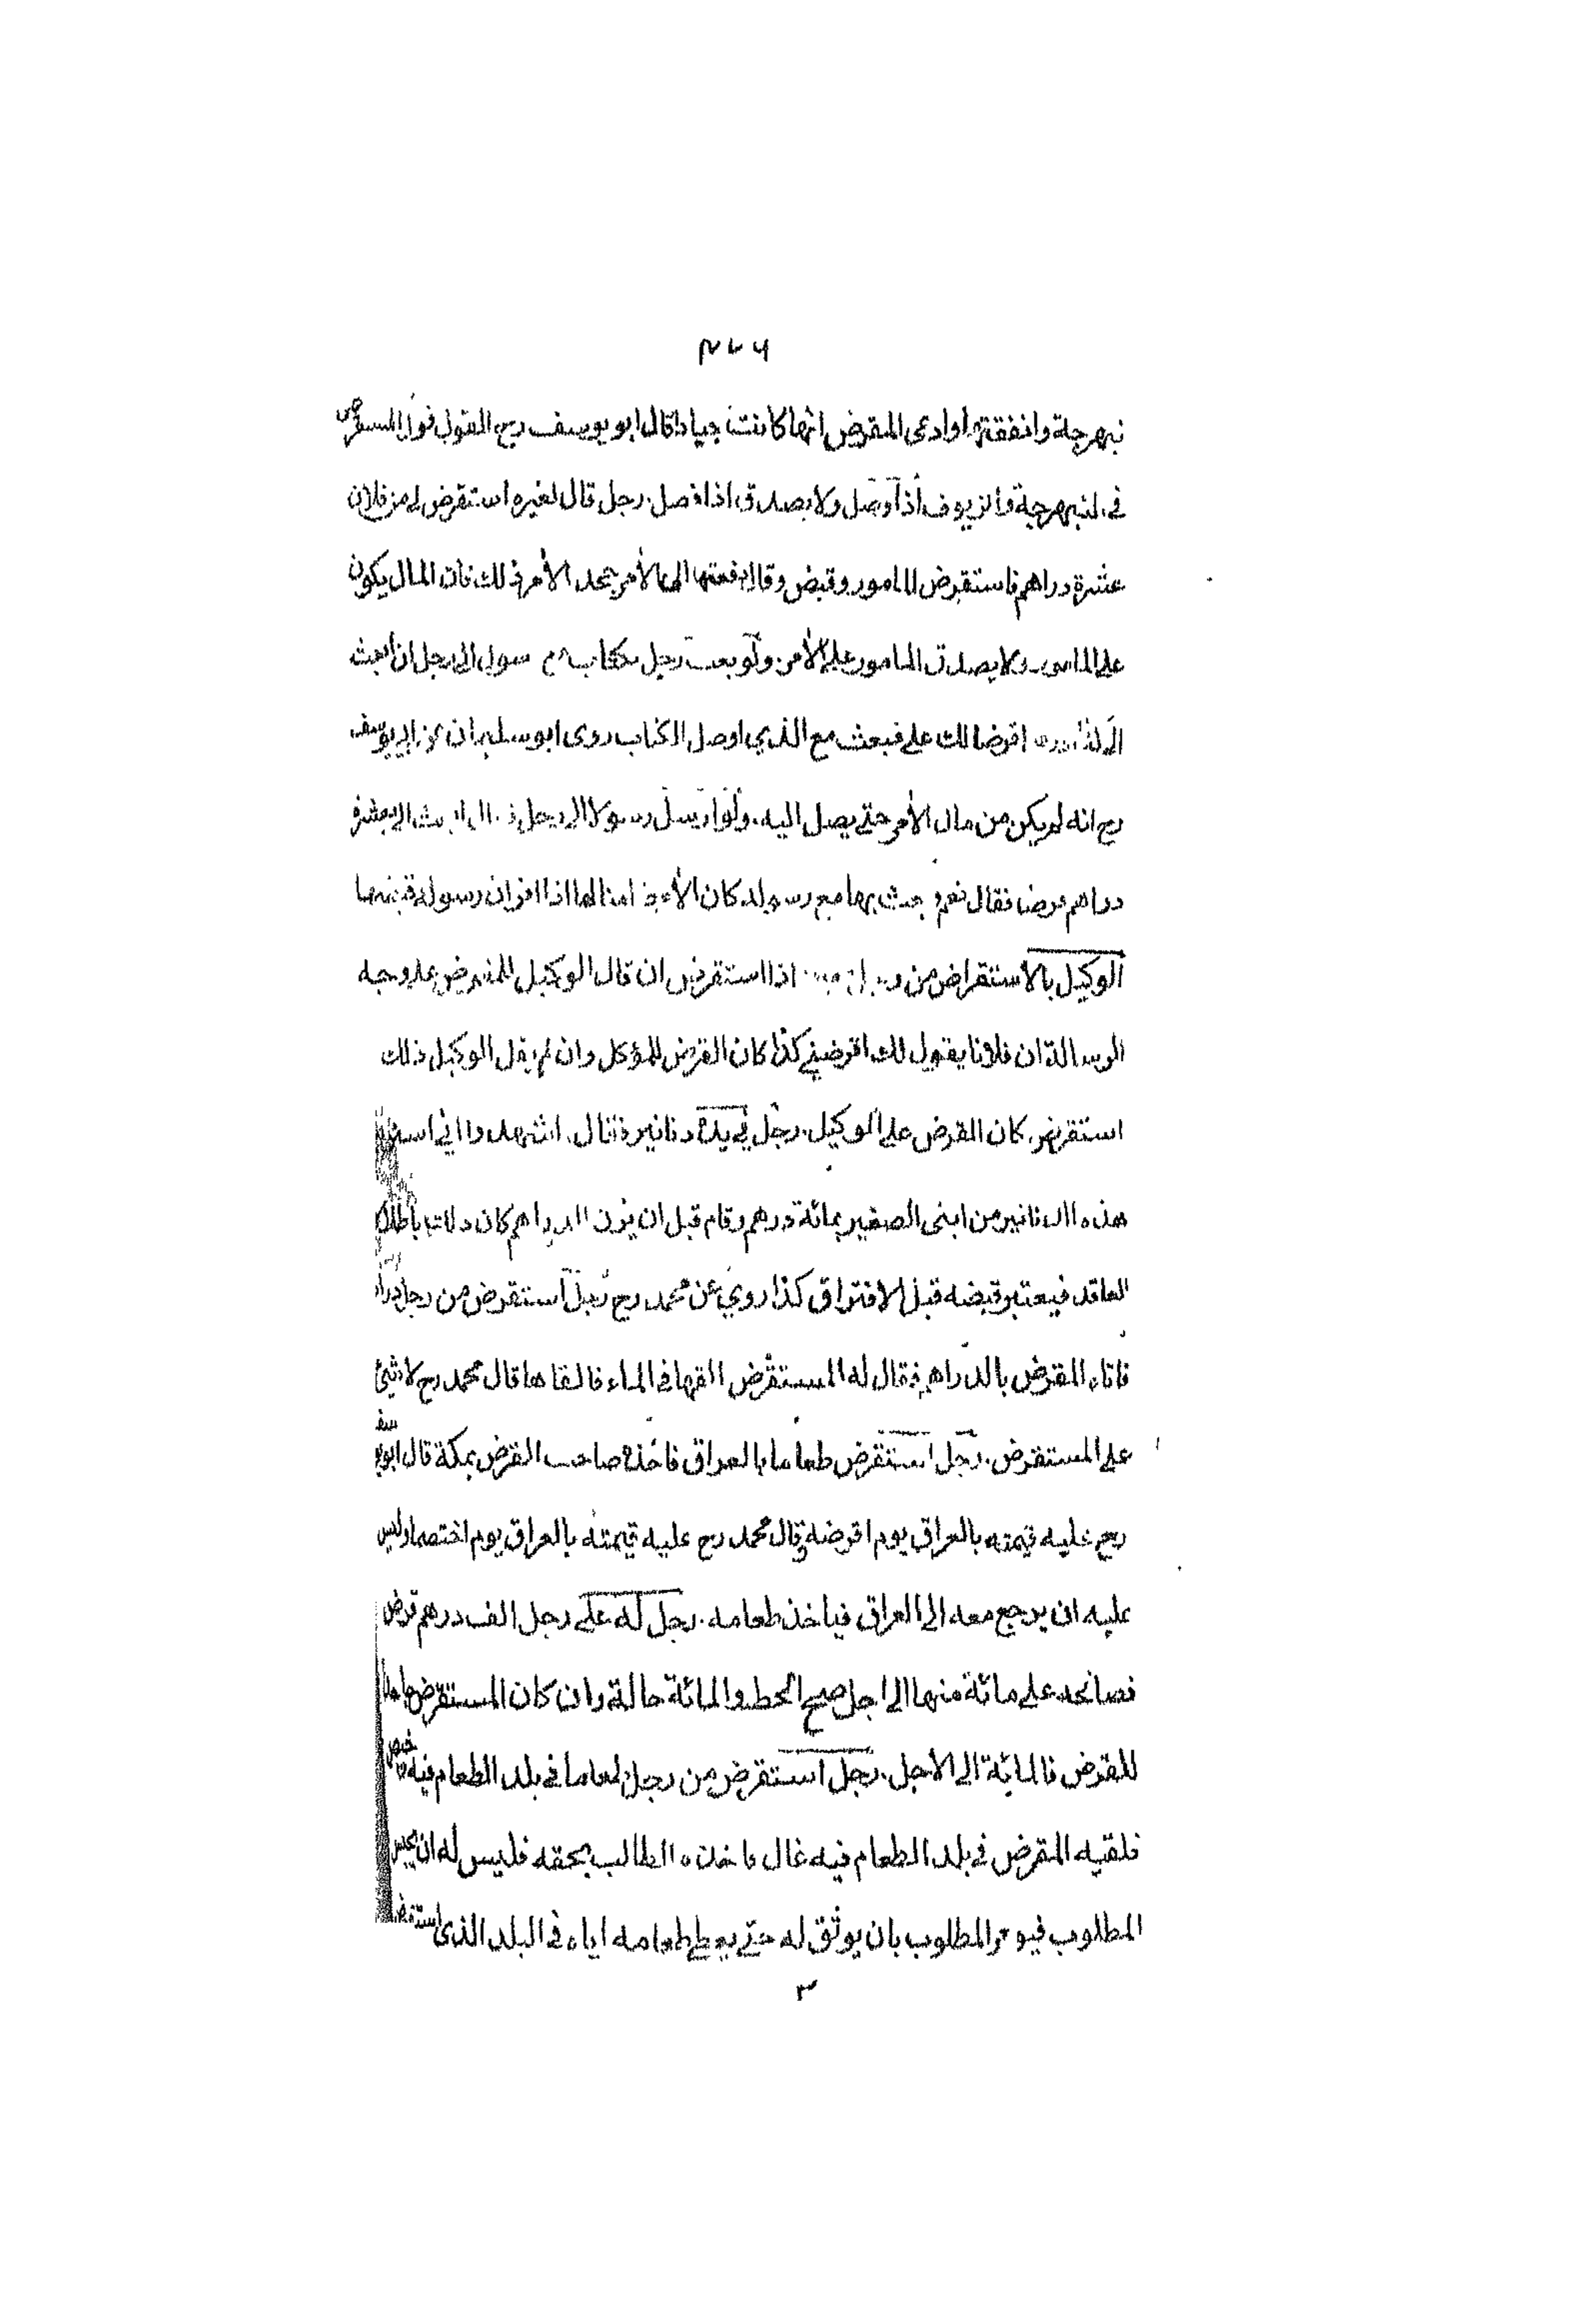 نبهرجة وانفقتها وادعى المقرض انها كانت جيادا قال ابو يوسف رح القول قول المستقرض
في النبهرجة والزيوف اذا وصل ولا يصدق اذا فصل. رجل قال لغيره استقرض لي من فلان
عشرة دراهم فاستقرض المامور وقبض وقال دفعتها الى الأمر وجحد الأمر ذلك فان المال يكون
على المامور ولا يصدق المامور على الأمر. ولو بعث رجل بكتاب مع رسول الى رجل ان ابعث
الي كذا درهم اقرضا لك علي فبعث مع الذي اوصل الكتاب روى ابو سليمان عن ابي يوسف
رح انه لم يكن من مال الأمر حتى يصل اليه. ولو ارسل رسولا الى رجل ابعث الي بعشرة
دراهم قرضا فقال نعم وبعث بها مع رسوله كان الأمر ضامنا لها اذا اقر ان رسوله قبضها
الوكيل بالاستقراض من اذا استقرض ان قال الوكيل للمقرض على وجه
الرسالة ان فلانا يقول لك اقرضني كذا كان القرض للمؤكل وان لم يقل الوكيل ذلك
استقرض كان القرض على الوكيل. رجل في يده دنانير فقال اشهدوا اني
هذه الدنانير من ابني الصغير بمائة درهم وقام قبل ان يزن الدراهم كان ذلك باطلا
العاقد فيعتبر قبضه قبل الافتراق كذا روي عن محمد رح رجل استقرض من رجل دراهم
فاتاه المقرض بالدراهم فقال له المستقرض القها في الماء فالقاها قال محمد رح لا شئ
على المستقرض. رجل استقرض طعاما بالعراق فاخذه صاحب القرض بمكة قال ابو يوسف
رح عليه قيمته بالعراق يوم اقرضه وقال محمد رح عليه قيمته بالعراق يوم اختصما وليس
عليه ان يرجع معه الى العراق فياخذ طعامه. رجل له على رجل الف درهم قرض
فصالحه على مائة منها الى اجل صح الحط والمائة حالة وان كان المستقرض جاحدا
للمقرض فالمائة الى الاجل. رجل استقرض من رجل طعاما في بلد الطعام فيه رخيص
فلقيه المقرض في بلد الطعام فيه غال فاخذه الطالب بحقه فليس له ان يحبس
المطلوب فيومر المطلوب بان يوثق له حتى يعطي طعامه اياه في البلد الذي استقرض
٣